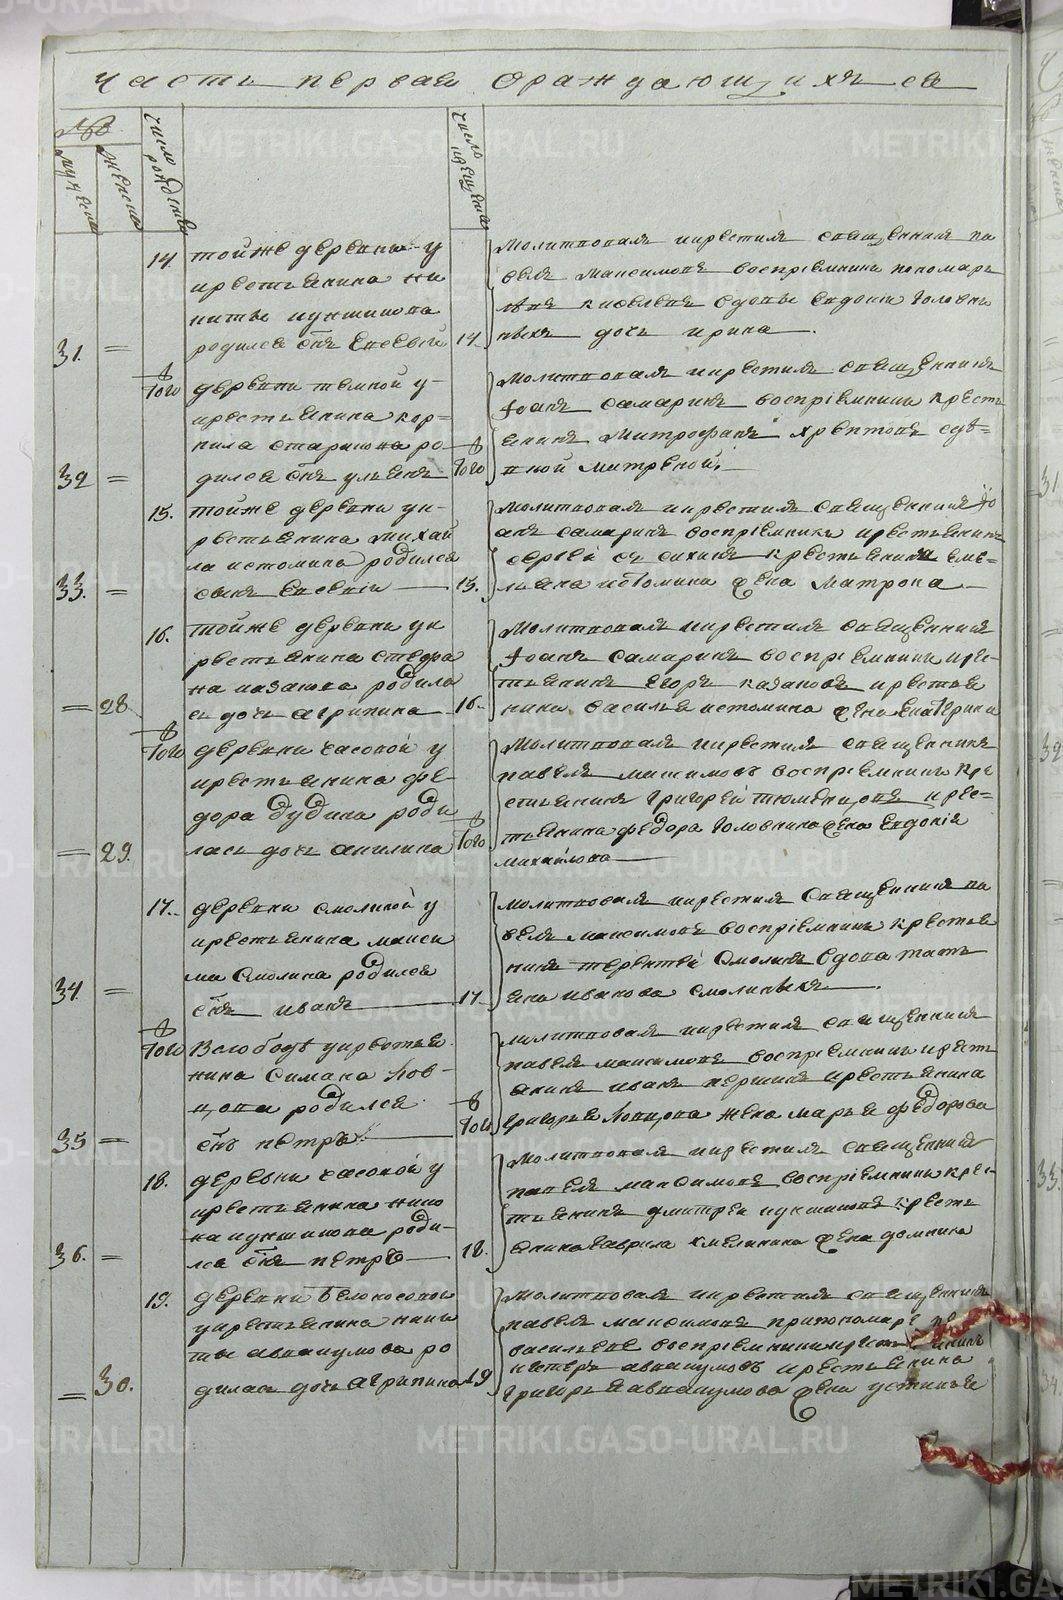 часть первая ораждающихъся
№
мужеска
женска
число рождения
число крещения
31. =
14.
тойже деревни у
крестьянина ни
киты кукшинова
родился снъ Евсевий
14.
Молитвовалъ икрестилъ священникъ па
велъ Максимовъ воспріемники пономарь
вдовы Евдокии головни
ныхъ дочь ирина.
32 =
того
деревни темной у
крестьянина кор=
нила старикова ро
дился снъ ульянъ
того
Молитвовалъ икрестилъ священникъ
Иоанъ Самаринъ воспріемники кресть
янинъ Митрофанъ
33. =
15.
тойже деревни ук
рестьянина михай
ла истомина родился
сынъ Евсевии
15.
Молитвовалъ икрестилъ священникъ Ио
анъ самаринъ воспріемники крестьянинъ
сергей крестьянина еме=
льяна истомина жена матрона
= 28.
16.
тойже деревни ук
рестьянина Стефа
на казакова родила
сь дочь агрипина
16.
Молитвовалъ икрестилъ священникъ
Иоанъ Самаринъ воспріемники крес
тьянинъ Егоръ казаковъ крестья
нина василья истомина жена Екатерина
= 29.
того
деревни часовой у
крестьянина фе
дора дудина роди
лась дочь акилина
того
Молитвовалъ икрестилъ священникъ
павелъ максимовъ воспріемники кре
стьянинъ григорей тюменцовъ крес=
тьянина федора головнина жена Евдокія
михаилова
34. =
17.
деревни смолиной у
крестьянина макси
ма Смолина родился
снъ иванъ
17.
молитвовалъ икрестилъ Священникъ па
велъ максимовъ воспріемники крестья
нинъ терентей Смолинъ вдова тать
яна иванова смолиныхъ.
35 =
того
Вслободѣ укрестья
нина Симана
родился
снъ петръ.
того
молитвовалъ икрестилъ священникъ
павелъ максимовъ воспріемники кресть
янинъ иванъ першинъ крестьянина
григорья жена марья федорова
36. =
18.
деревни часовой у
крестьянина нико
на кукшинова роди=
лся снъ петръ
18.
Молитвовалъ икрестилъ священникъ
павелъ максимовъ воспріемники крес
тьянинъ дмитреи кукшиновъ кресть
янина гаврила жена домника
= 30.
19.
деревни Белоносовой
укрестьянина ники
ты авакумова ро
дилась дочь агрипина
19
Молитвовалъ икрестилъ священникъ
павелъ максимовъ припономарѣ
васильевѣ воспріемники
петеръ авакумовъ крестьянина
григорья авакумова жена устинья